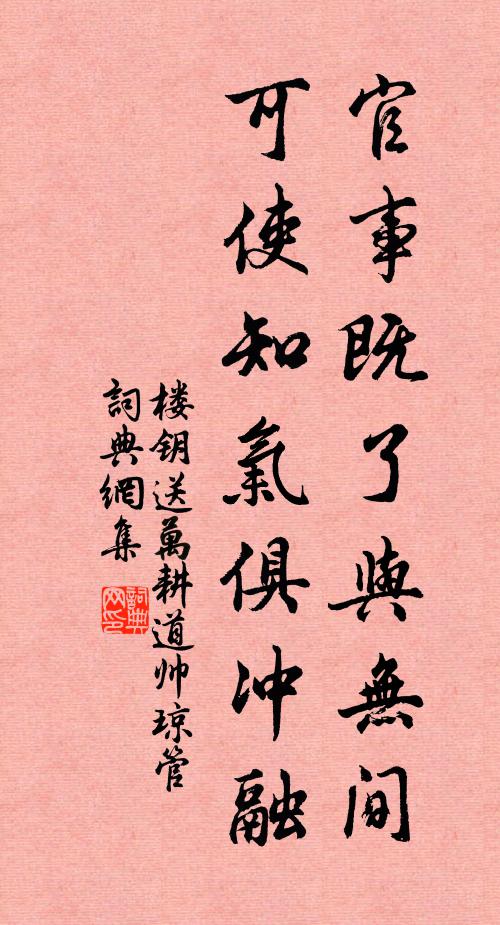 官事既了與無间
可使知氣俱冲融
楼钥送萬耕道帅琼管
詞典網集
詞典
网印